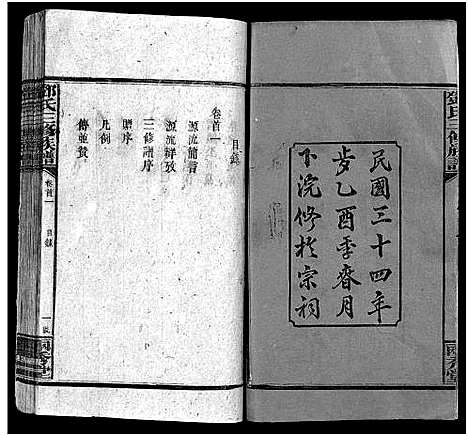 民國三十四年
歲乙酉季春月
下浣修於宗祠
鄧氏三修族譜
目錄
卷首一
源流備考
源流辯效
三修譜序
贈序
凡例
傳並贊
鄧氏三修族譜
卷首一
目錄
一